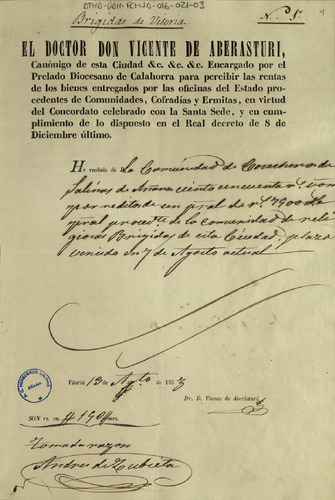 DTHD-DDH-FCHSD-016-021-03
4
Brigidas de Vitoria.
N.º 5.
EL DOCTOR DON VICENTE DE ABERASTURI,
Canónigo de esta Ciudad &c. &c. &c. Encargado por el
Prelado Diocesano de Calahorra para percibir las rentas
de los bienes entregados por las oficinas del Estado pro-
cedentes de Comunidades, Cofradías y Ermitas, en virtud
del Concordato celebrado con la Santa Sede, y en cum-
plimiento de lo dispuesto en el Real decreto de 8 de
Diciembre último.
He recibido de La Comunidad de Cosecheros de
Salinas de Añana ciento cincuenta
por reditos de un pral de
pral procedte de la Comunidad de reli-
giosas Brigidas de esta Ciudad, plazo
vencido en 7 de Agosto actual
Vitoria 13 de Agto de 1853
Dr. D. Vicente de Aberasturi
SON rs. vn.
Tomada razon
Andres de Zubieta